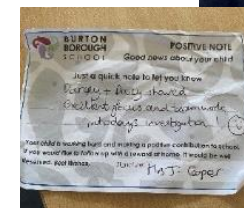 BURTON
BOROUGH
SCHOOL
POSITIVE NOTE
Good news about your child
Just a quick note to let you know
showed
Excellent and teamwork
todays investigation
Your child is working hard and making a positive contribution to school.
If you would like to follow up with a reward at home it would be well
deserved.